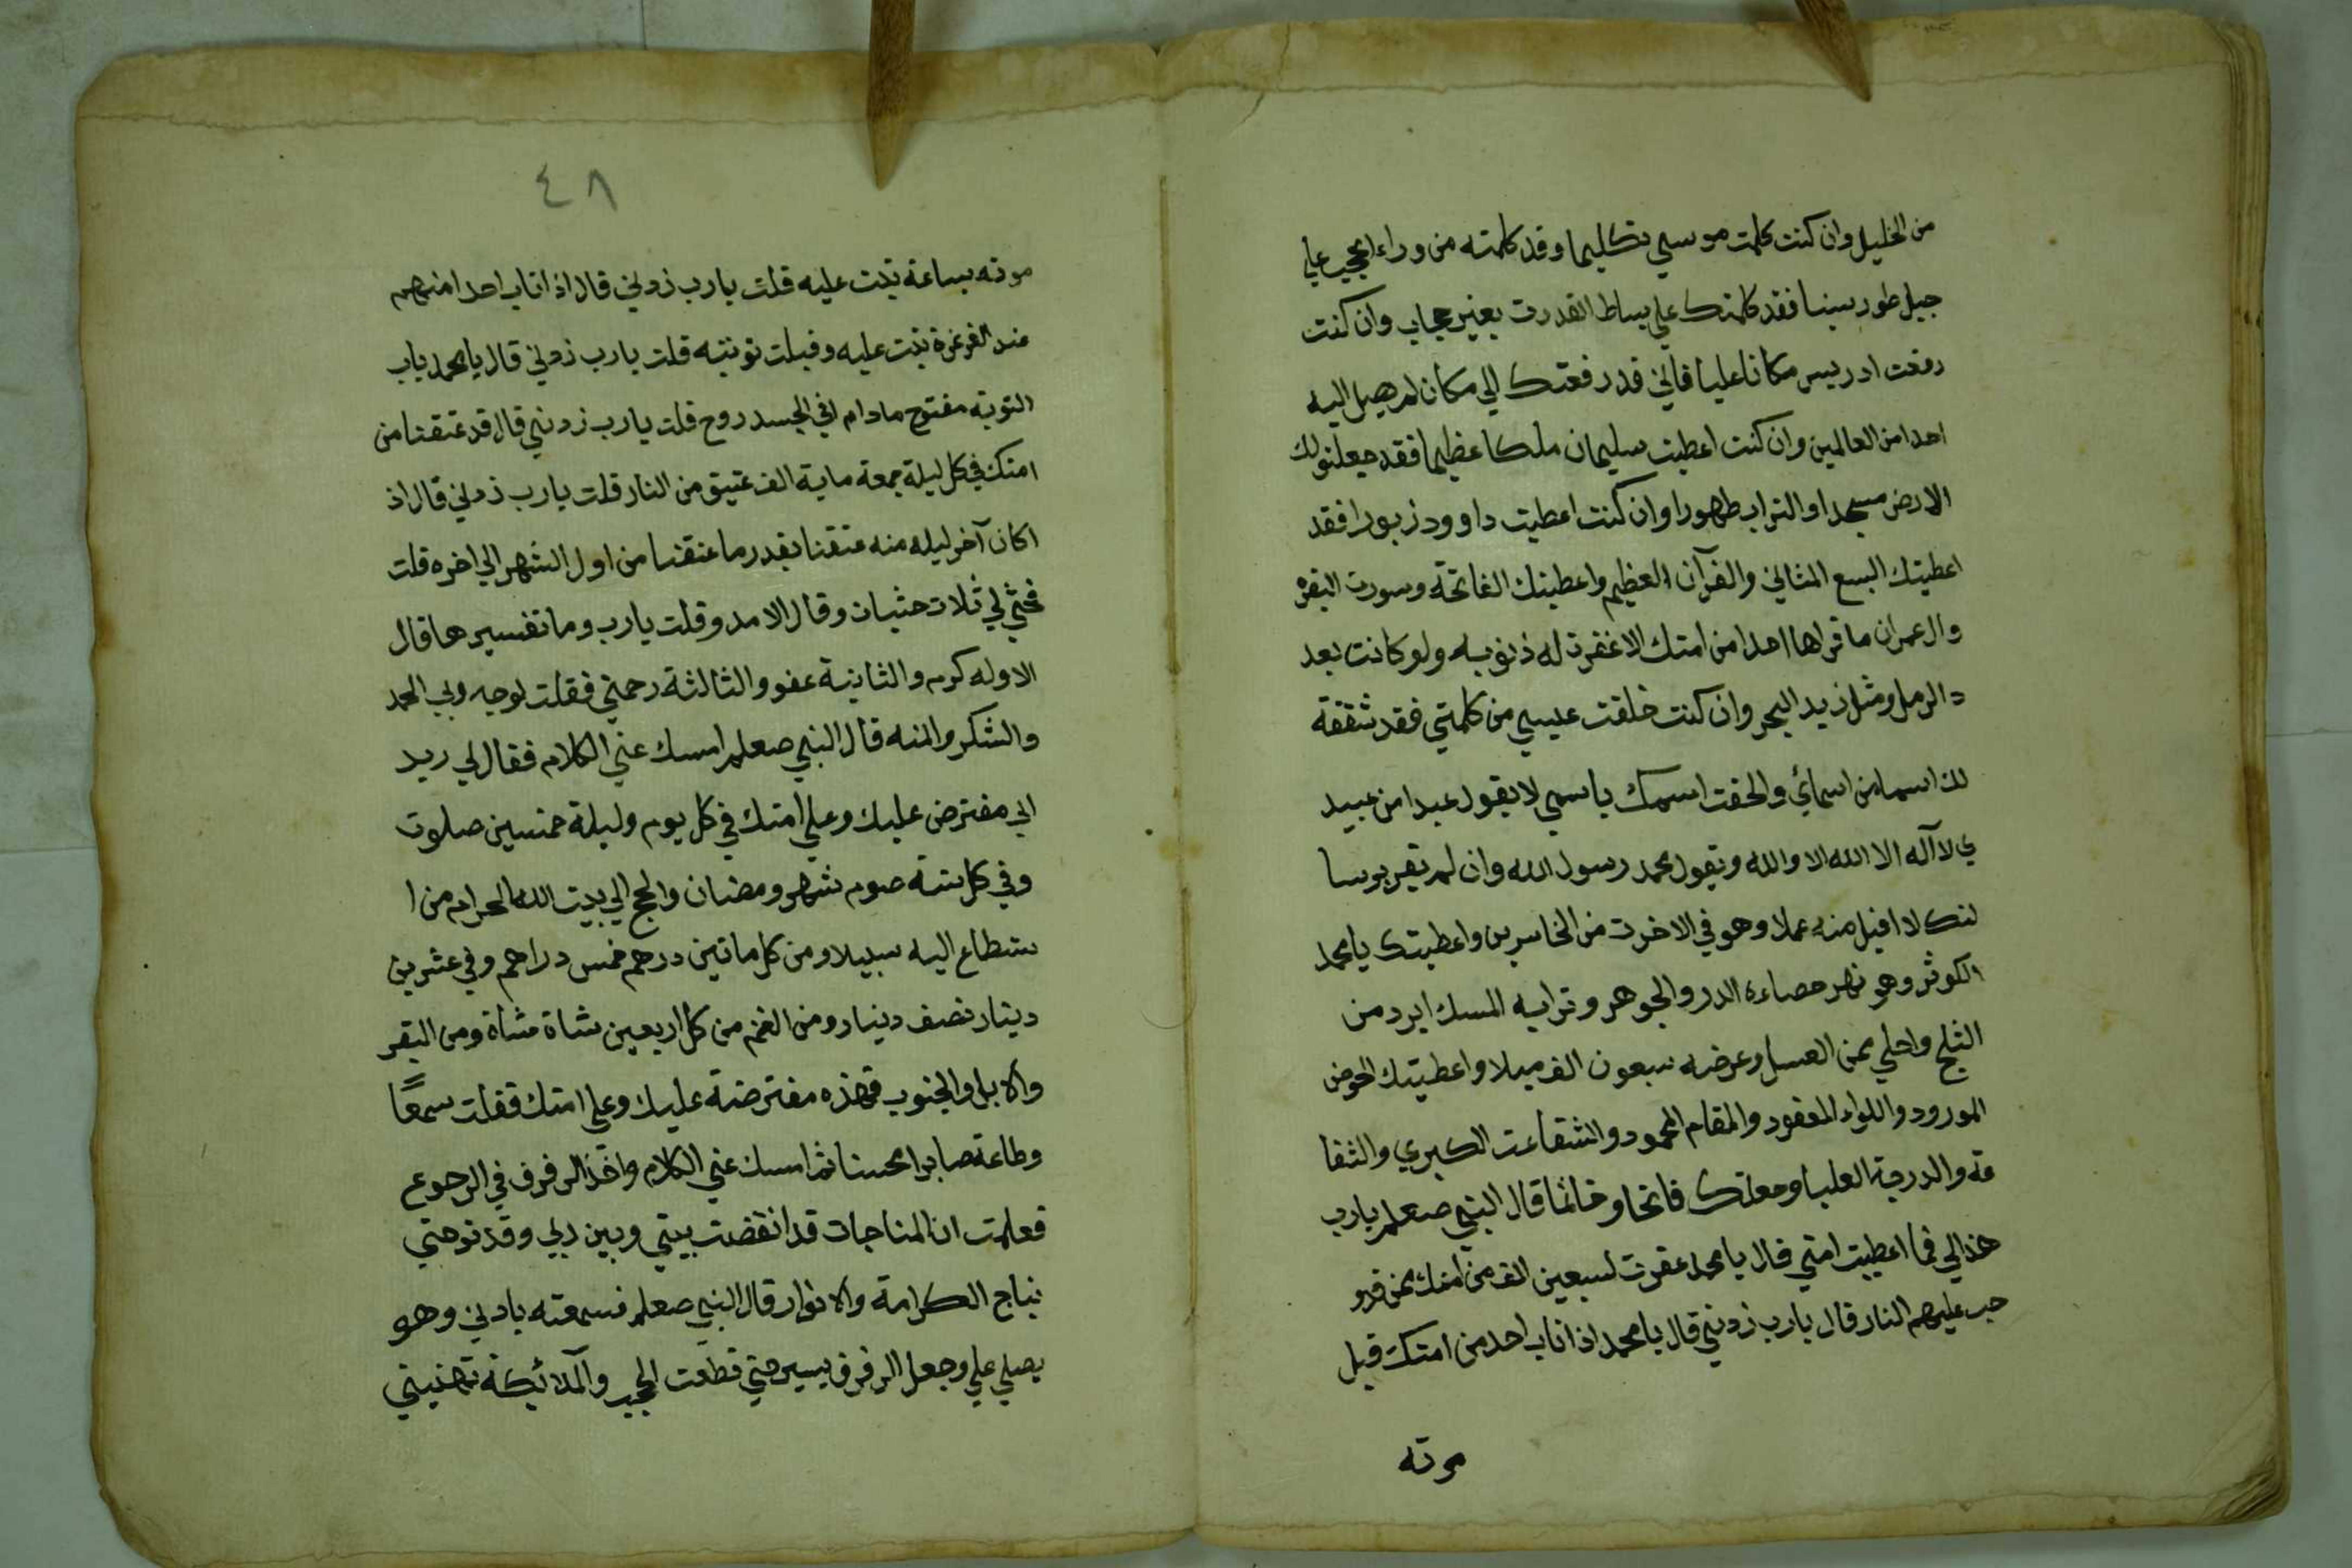 من الخليل وان كنت كلمت موسي تكليما وقد كلمته من وراء الحجب علي
جبل طور سينا فقد كلمتك علي بساط القدرت بغير حجاب وان كنت
رفعت ادريس مكانا عليا فاني قد رفعتك الي مكان لم يصل اليه
احدا من العالمين وان كنت اعطيت سليمان ملكا عظيما فقد جعلتو لك
الارض مسجدا والتراب طهورا وان كنت اعطيت داوود زبورا فقد
اعطيتك السبع المثاني والقرآن العظيم واعطيتك الفاتحة وسورت البقره
وال عمران ما قراها احدا من امتك الا غفرت له ذنوبه ولو كانت بعد
د الرمل ومثل زبد البحر وان كنت خلقت عيسي من كلمتي فقد شققة
لك اسما من اسمائي والحقت اسمك باسمي لا يقول عبدا من عبيد
ي لا آله الا الله الا والله ويقول محمد رسول الله وان لم يقر برسا
لتك لا اقبل منه عملا وهو في الاخرت من الخاسرين واعطيتك يا محمد
الكوثر وهو نهر حصاءه الدر والجوهر وترابه المسك ابرد من
الثلج واحلي من العسل وعرضه سبعون الف ميلا واعطيتك الحوض
المورود واللواء المعقود والمقام المحمود والشفاعت الكبري والشفا
عه والدرجة العليا وجعلتك فاتحا وخاتما قال النبي صعلم يارب
هذا لي فما اعطيت امتي قال يا محمد غفرت لسبعين الف من امتك من قد و
جب عليهم النار قال يارب زدني قال يا محمد اذا تاب احد من امتك قبل
موته
٤٨
موته بساعة تبت عليه قلت يارب زدني قال اذا تاب احدا منهم
عند الغرغرة تبت عليه وقبلت توبته قلت يارب زدني قال يا محمد باب
التوبه مفتوح مادام في الجسد روح قلت يارب زدني قال قد عتقنا من
امتك في كل ليلة جمعة ماية الف عتيق من النار قلت يارب زدني قال اذ
ا كان آخر ليله منه عتقنا بقدر ما عتقنا من اول الشهر الي اخره قلت
فحثي لي ثلاث حثيات وقال الامد وقلت يارب وما تفسيرها قال
الاوله كرم والثانية عفو والثالثة رحمتي فقلت لوجه ربي الحمد
والشكر والمنه قال النبي صعلم امسك عني الكلام فقال لي ريد
اني مفترض عليك وعلي امتك في كل يوم وليلة خمسين صلوت
وفي كل سنة صوم شهر ومضان والحج الي بيت الله الحرام من ا
ستطاع اليه سبيلا ومن كل ماتين درهم خمس دراهم وفي عشرين
دينار نصف دينار ومن الغنم من كل اربعين شاة شاة ومن البقر
والابل والجنوب فهذه مفترضة عليك وعلي امتك فقلت سمعًا
وطاعة صابرا محسنا ثم امسك عني الكلام واخذ الرفرف في الرجوع
فعلمت ان المناجات قد انقضت بيني وبين ربي وقد توجتي
بتاج الكرامة والانوار قال النبي صعلم فسمعته بادني وهو
يصلي علي وجعل الرفرف يسير حتي قطعت الحجب والملائكة تهنيني